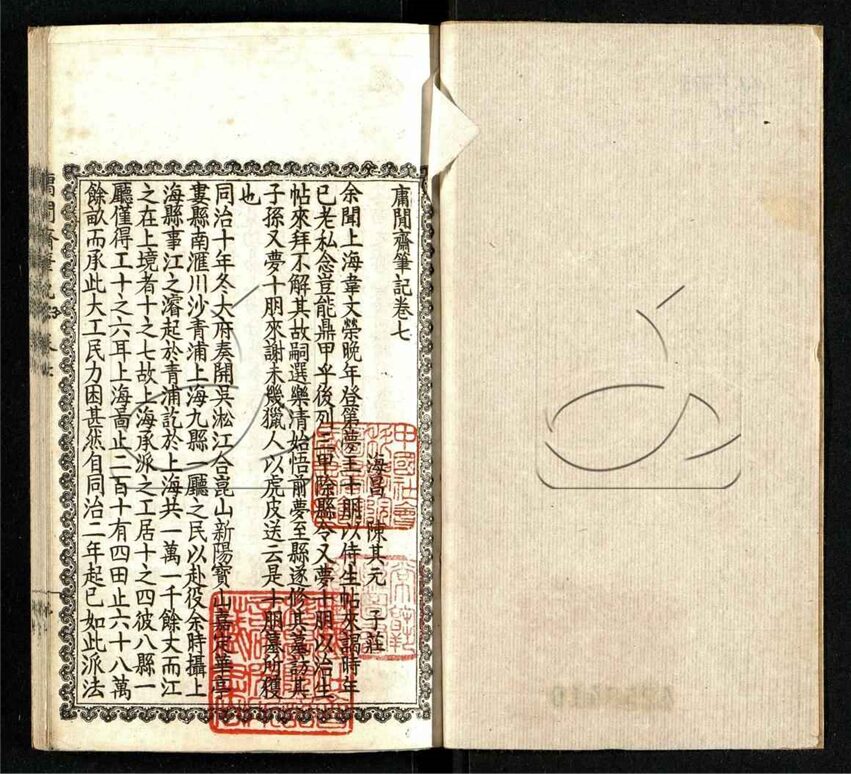 庸閒齋筆記卷七
海昌 陳其元 子莊
余聞上海韋文榮晚年登第夢王十朋以侍生帖來謁時年
已老私念豈能鼎甲乎後列三甲除縣令又夢十朋以治生
帖來拜不解其故嗣選樂清始悟前夢至縣遂修其墓訪其
子孫又夢十朋來謝未幾獵人以虎皮送云是十朋墓所獲
也
同治十年冬大府奏開吳淞江合崑山新陽寶山嘉定華亭
婁縣南滙川沙青浦上海九縣一廳之民以赴役余時攝上
海縣事江之濬起於青浦訖於上海共一萬一千餘丈而江
之在上境者十之七故上海承派之工居十之四彼八縣一
廳僅得工十之六耳上海啚止二百十有四田止六十八萬
餘畝而承此大工民力困甚然自同治二年起已如此派法